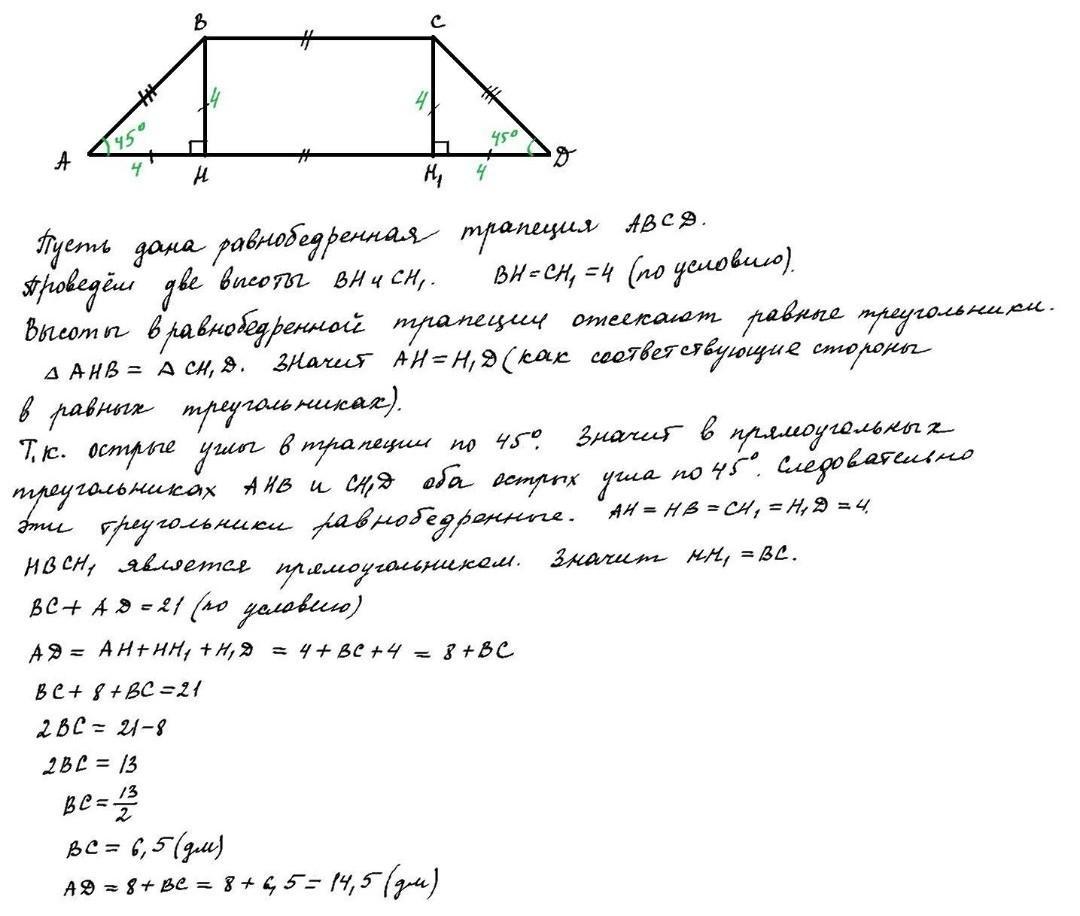 B C
4 4
45° 45°
A H H₁ D
4 4
Пусть дана равнобедренная трапеция ABCD.
Проведём две высоты BH и CH₁. BH=CH₁=4 (по условию).
Высоты в равнобедренной трапеции отсекают равные треугольники.
△ AHB = △ CH₁D. Значит AH=H₁D (как соответствующие стороны
в равных треугольниках).
Т.к. острые углы в трапеции по 45°. Значит в прямоугольных
треугольниках AHB и CH₁D оба острых угла по 45°. Следовательно
эти треугольники равнобедренные. AH=HB=CH₁=H₁D=4.
HBCH₁ является прямоугольником. Значит HH₁=BC.
BC+AD=21 (по условию)
AD = AH+HH₁+H₁D = 4+BC+4 = 8+BC
BC+8+BC=21
2BC=21-8
2BC=13
BC=13/2
BC=6,5(дм)
AD=8+BC=8+6,5=14,5(дм)